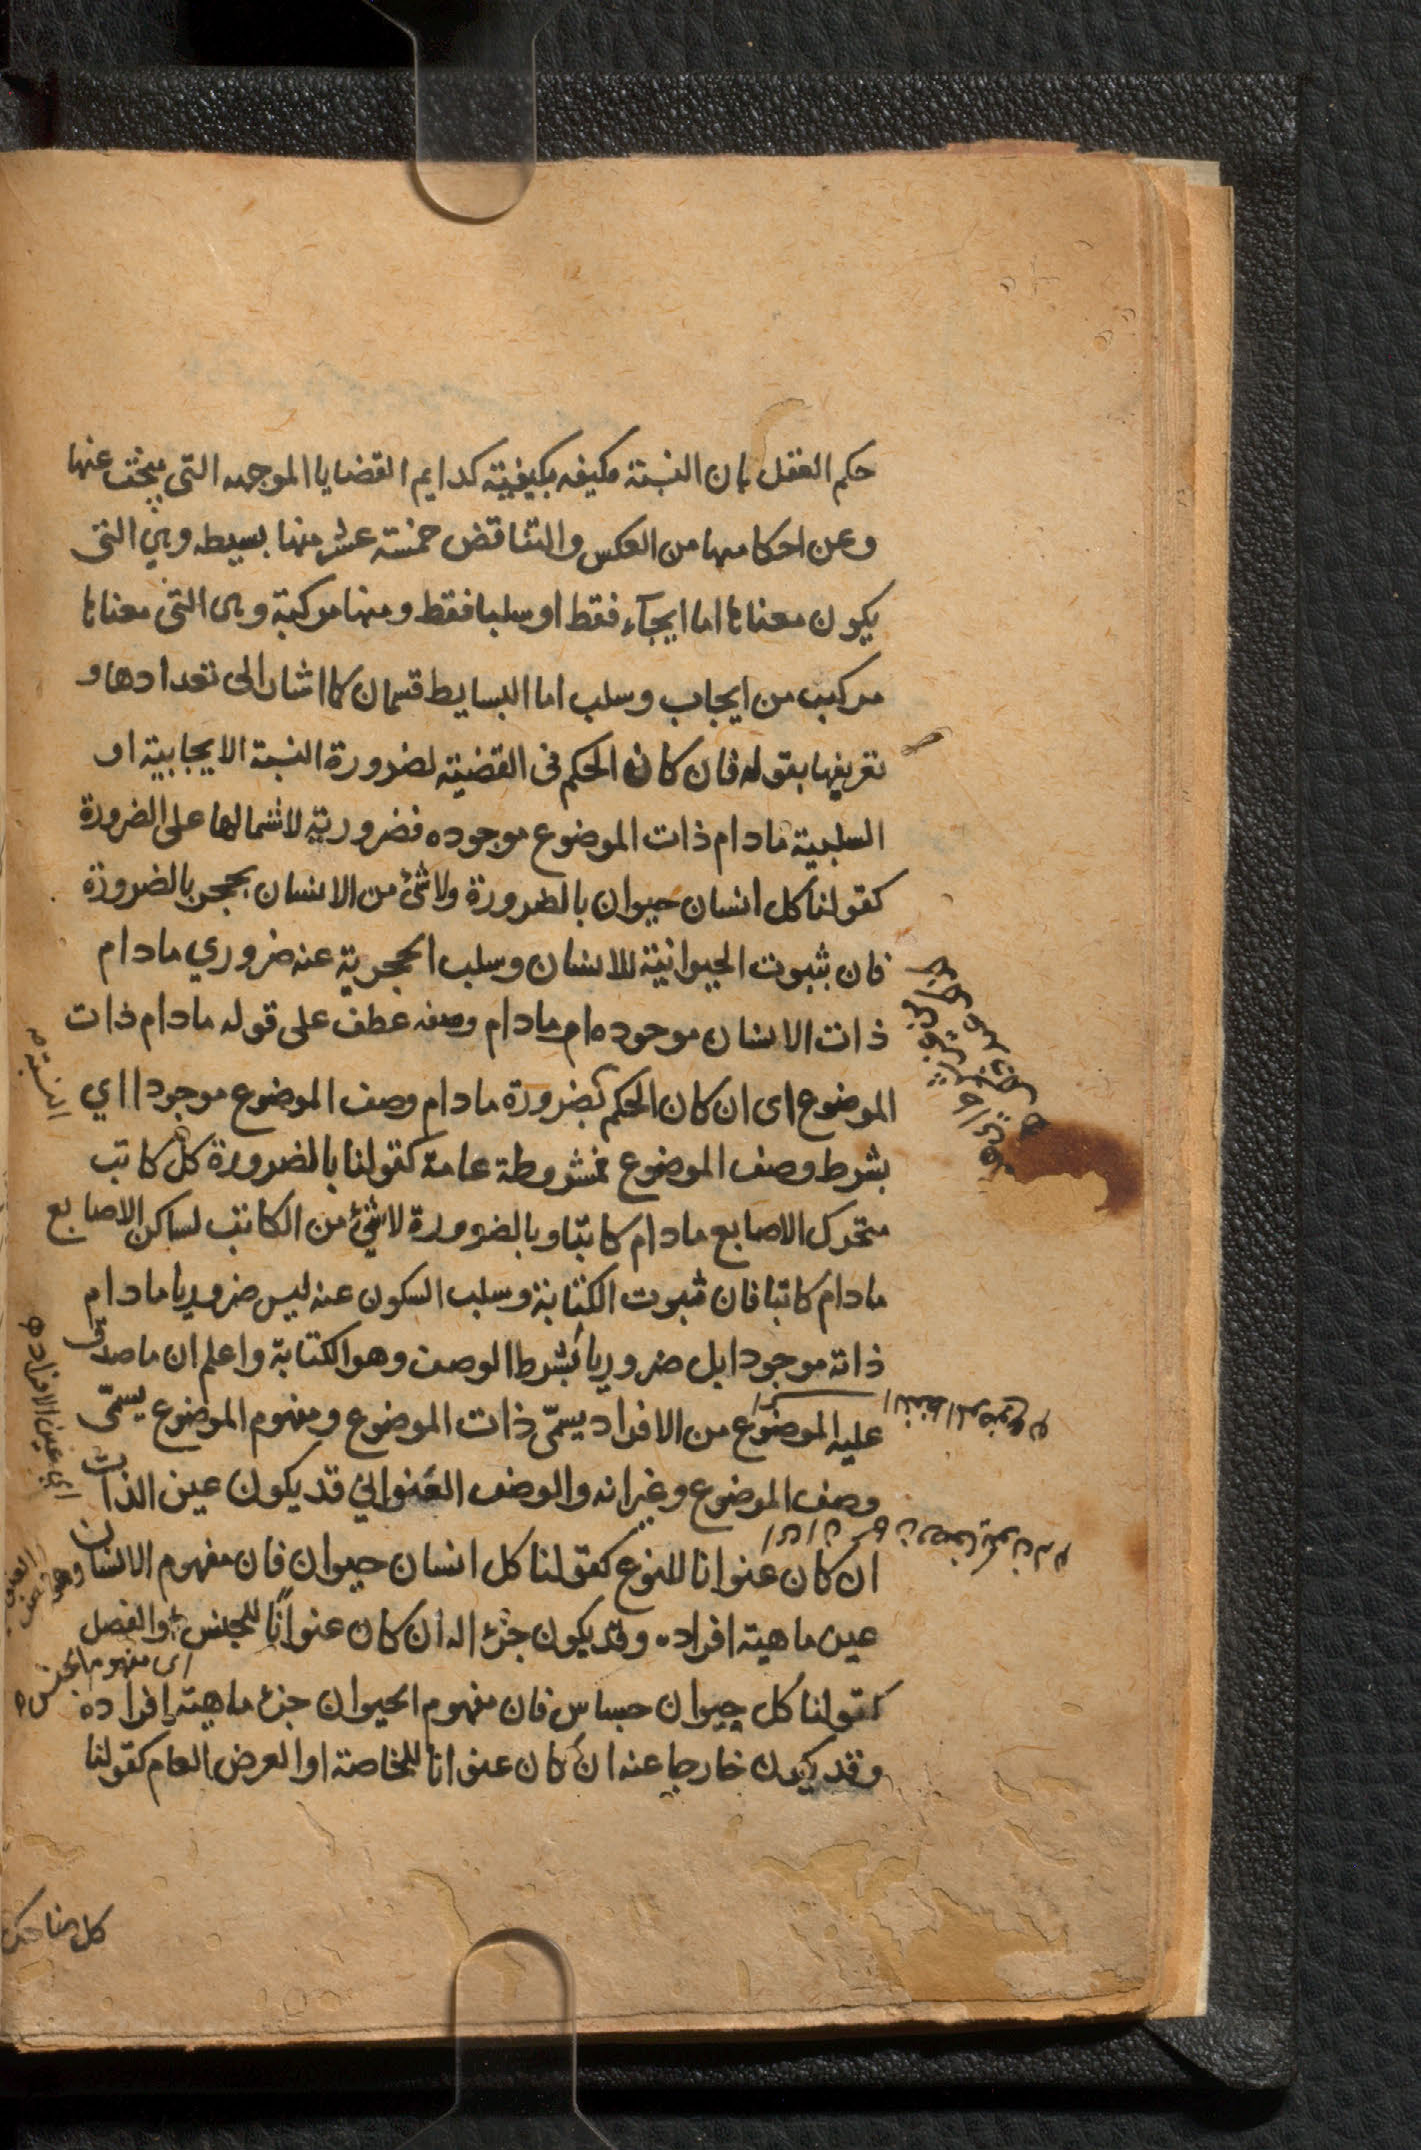 حكم العقل بان النسبة مكيفه بكيفية كدايم القضايا الموجهه التى يبحث عنها
وعن احكامها من العكس والتناقض خمسة عشر منها بسيطه وهي التى
يكون معناها اما ايجآء فقط او سلبا فقط ومنها مركبة وهى التى معناها
مركب من ايجاب وسلب اما البسايط قسمان كما اشار الى تعدادها و
تعريفها بقوله فان كان الحكم فى القضية لضرورة النسبة الايجابية او
السلبية مادام ذات الموضوع موجوده فضرورية لاشمالها على الضرورة
كقولنا كل انسان حيوان بالضرورة ولا شئ من الانسان بحجر بالضرورة
فان ثبوت الحيوانية للانسان وسلب الحجرية عنه ضروري مادام
ذات الانسان موجوده ام مادام وصفه عطف على قوله مادام ذات
الموضوع اى ان كان الحكم بضرورة مادام وصف الموضوع موجودا اي
النسبة
بشرط وصف الموضوع فمشروطة عامة كقولنا بالضرورة كل كاتب
متحرك الاصابع مادام كاتبا وبالضرورة لا شئ من الكاتب لساكن الاصابع
مادام كاتبا فان ثبوت الكتابة وسلب السكون عنه ليس ضروريا مادام
ذاته موجودا بل ضروريا بشرط الوصف وهو الكتابة واعلم ان ماصدق
عليه الموضوع من الافراد يسمّى ذات الموضوع ومفهوم الموضوع يسمّى
اي عين الافراد
وصف الموضوع وعنوانه والوصف العنوانى قد يكون عين الذات
ان كان عنوانا للنوع كقولنا كل انسان حيوان فان مفهوم الانسان
عين ماهية افراده وقد يكون جزء اله ان كان عنوانًا للجنس والفصل
اى مفهوم الجنس
كقولنا كل حيوان حساس فان مفهوم الحيوان جزء ماهية افراده
وقد يكون خارجا عنه ان كان عنوانا للخاصة او العرض العام كقولنا
كل ضاحك